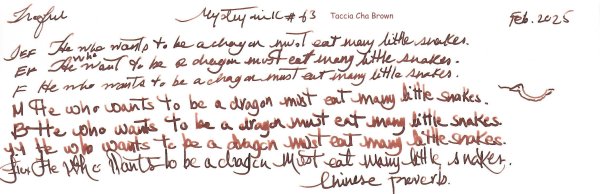 Mystery ink # 63 Taccia Cha Brown Feb. 2025
EEF He who wants to be a dragon must eat many little snakes.
EF He who want to be a dragon must eat many little snakes.
F He who wants to be a dragon must eat many little snakes.
M He who wants to be a dragon must eat many little snakes.
B He who wants to be a dragon must eat many little snakes.
He who wants to be a dragon must eat many little snakes.
He who wants to be a dragon must eat many little snakes.
Chinese proverb.